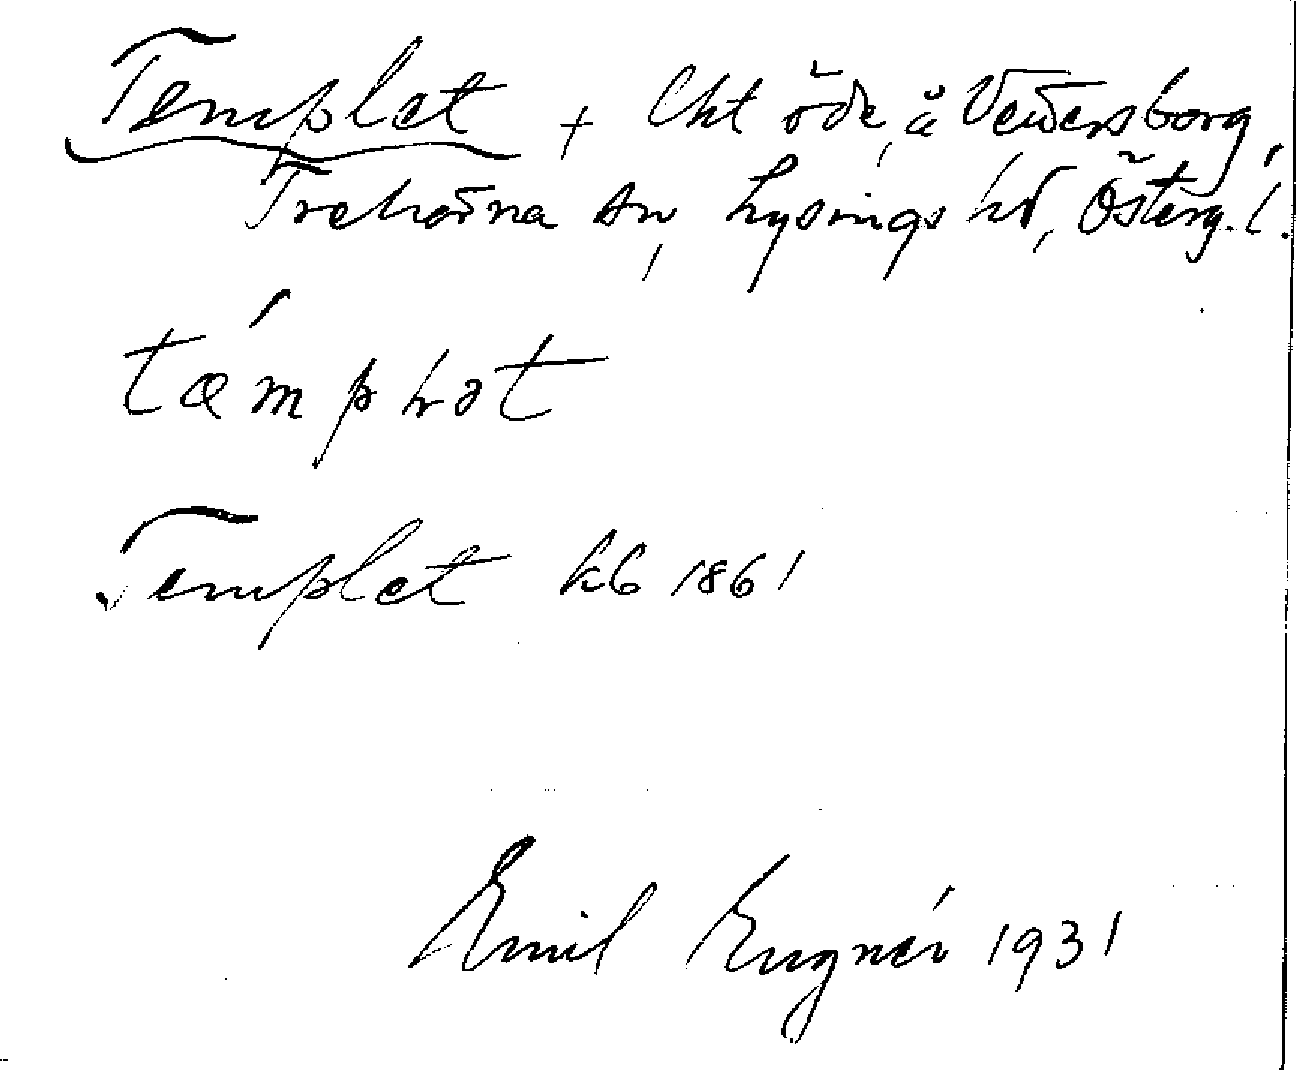 Templet + lht öde, å Vedersborg,
Trehörna sn, Lysings hd, Österg. l.
tǽmplət
Templet kb 1861
Emil Eugnér 1931